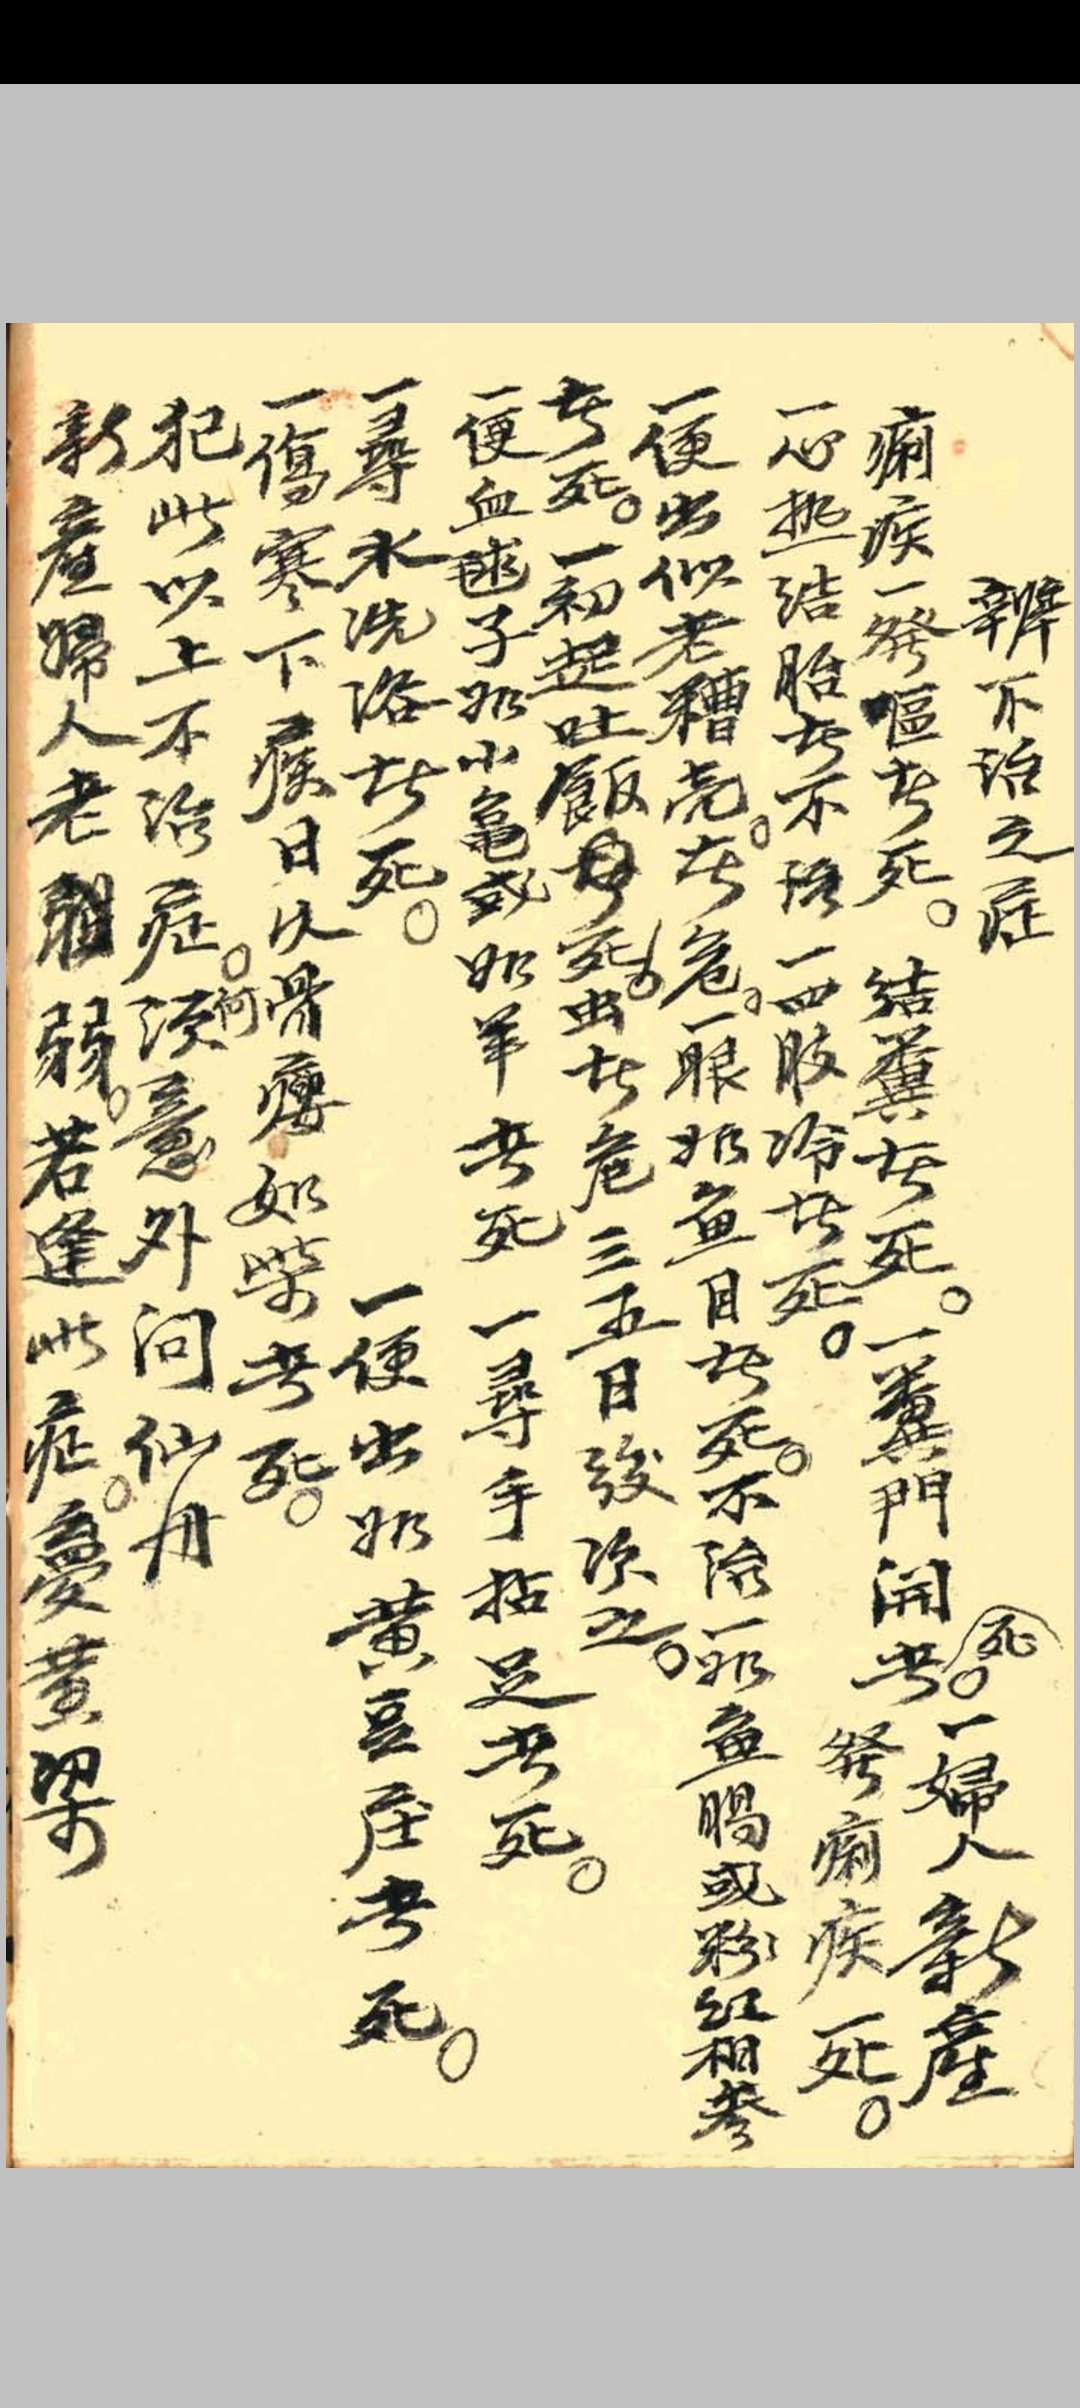 辨不治之症
痢疾一發嘔者死。結糞者死。一糞門開者死。一婦人新產
發痢疾死。
一心热結胎者不語一四肢冷者死。
一便出似老糟壳。者危。一眼如魚目者死。不治一如魚腸或粉紅相参
者死。一初起吐飯母死。虫者危三五日後次之。
一便血毬子如小龜或如羊者死 一尋手拈足者死。
一尋水洗浴者死。 一便出如黃豆庄者死。
一傷寒下痢日久骨瘦如柴者死。
犯此以上不治症。何須意外问仙丹
新產婦人老弱。若逢此症。憂黃梁